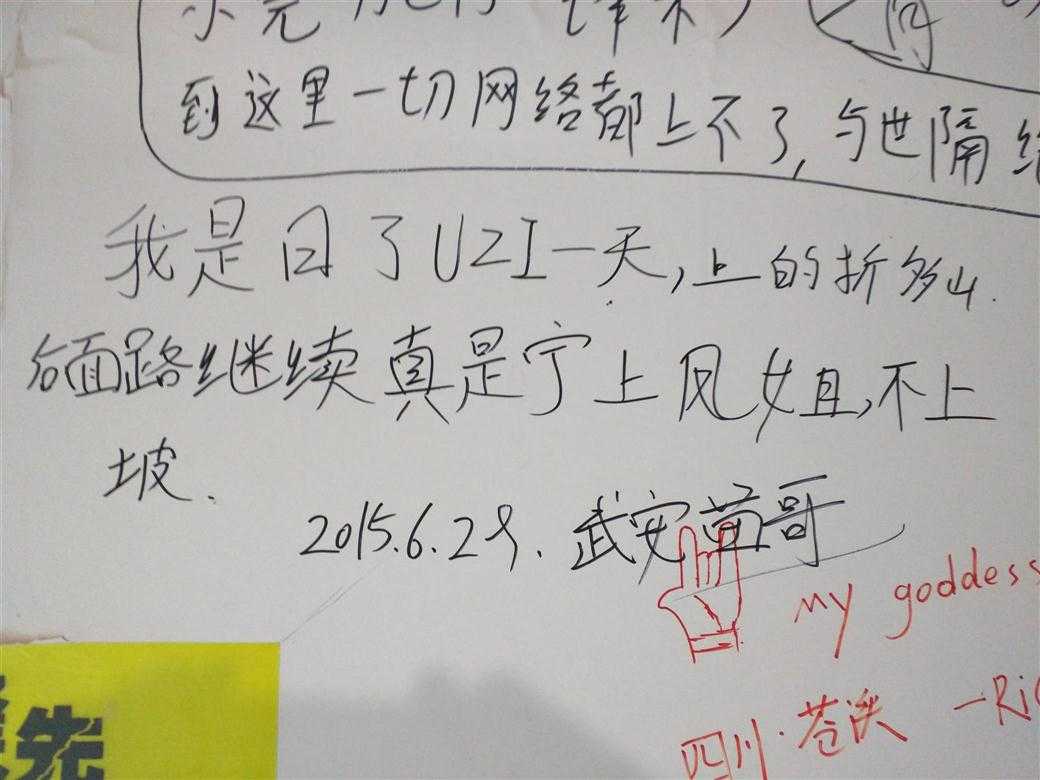 到这里一切网络都上不了,与世隔绝
我是日了UZI一天,上的折多山.
后面路继续真是宁上凤姐,不上
坡.
2015.6.29. 武安苗哥
my goddess
四川·苍溪 一Ri
先